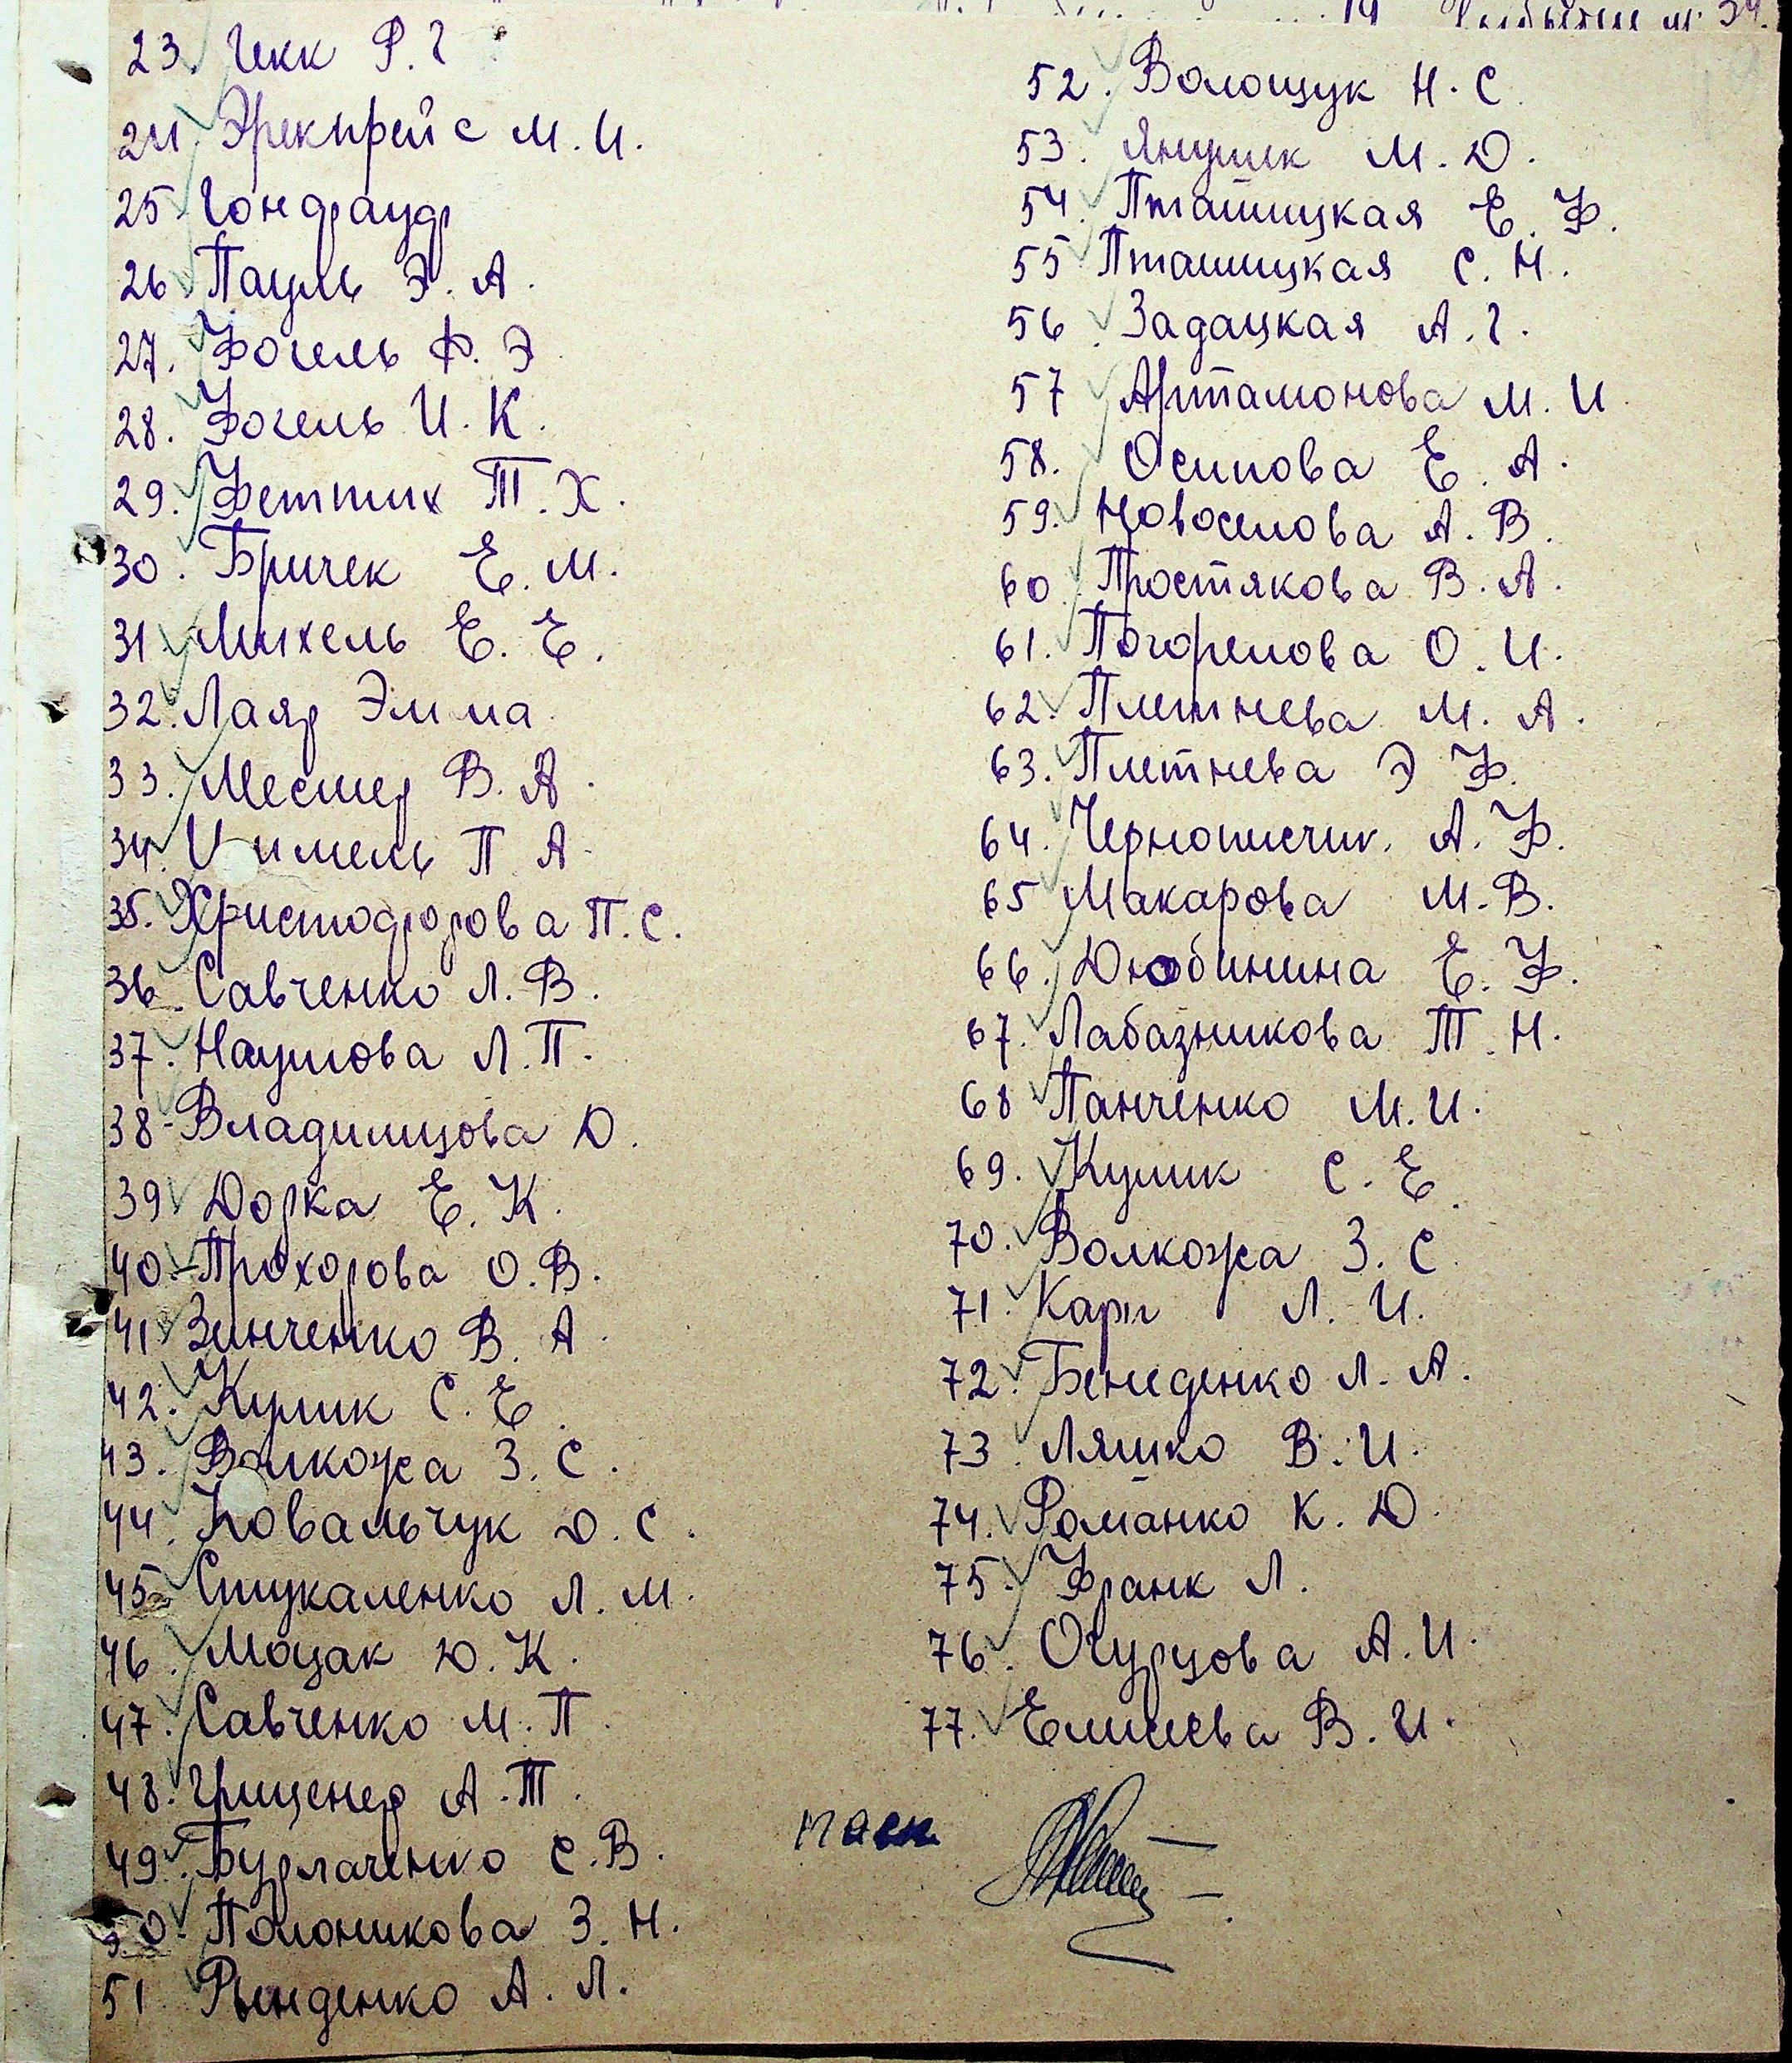 23. Гекк Р. Г
24. Эрекпрейс М. И.
25 Гондрауер
26 Пауль Э. А.
27. Фогель Ф. Э
28. Фогель И. К.
29. Феттих Т. Х.
30. Бричек Е. М.
31. Михель Е. Е.
32. Лаяр Эмма
33. Месмер В. А.
34. П А.
35. Христофорова П. С.
36. Савченко Л. В.
37. Наумова Л. П.
38 - Владимирова Ю.
39 Дорка Е. К.
40. Прохорова О. В.
41 Зинченко В. А.
42. Кулик С. Е.
43. Волкожа З. С.
44. Ковальчук Ю. С.
45 Стукаленко Л. М.
46. Моцак Ю. К.
47. Савченко М. П.
48. Грищенко А. Т.
49. Бурлаченко С. В.
50. Полоникова З. Н.
51 Рынденко А. Л.
52. Волощук Н. С.
53. Янушек М. Д.
54. Пташицкая Е. Ф.
55 Пташицкая С. Н.
56 Задацкая А. Г.
57 Артамонова М. И.
58. Осипова Е. А.
59. Новоселова А. В.
60 Простякова В. А.
61. Погорелова О. И.
62. Плетнева М. А.
63. Плетнева Э Ф.
64. Чернописчик. А. Ф.
65 Макарова М. В.
66. Дюбинина Е. Ф.
67. Лабазникова Т. Н.
68 Панченко М. И.
69. Кулик С. Е.
70. Волкожа З. С.
71. Карп Л. И.
72. Бенеденко Л. А.
73. Ляшко В. И.
74. Романко К. Д.
75. Франк Л.
76. Огурцова А. И.
77. Елисеева В. И.